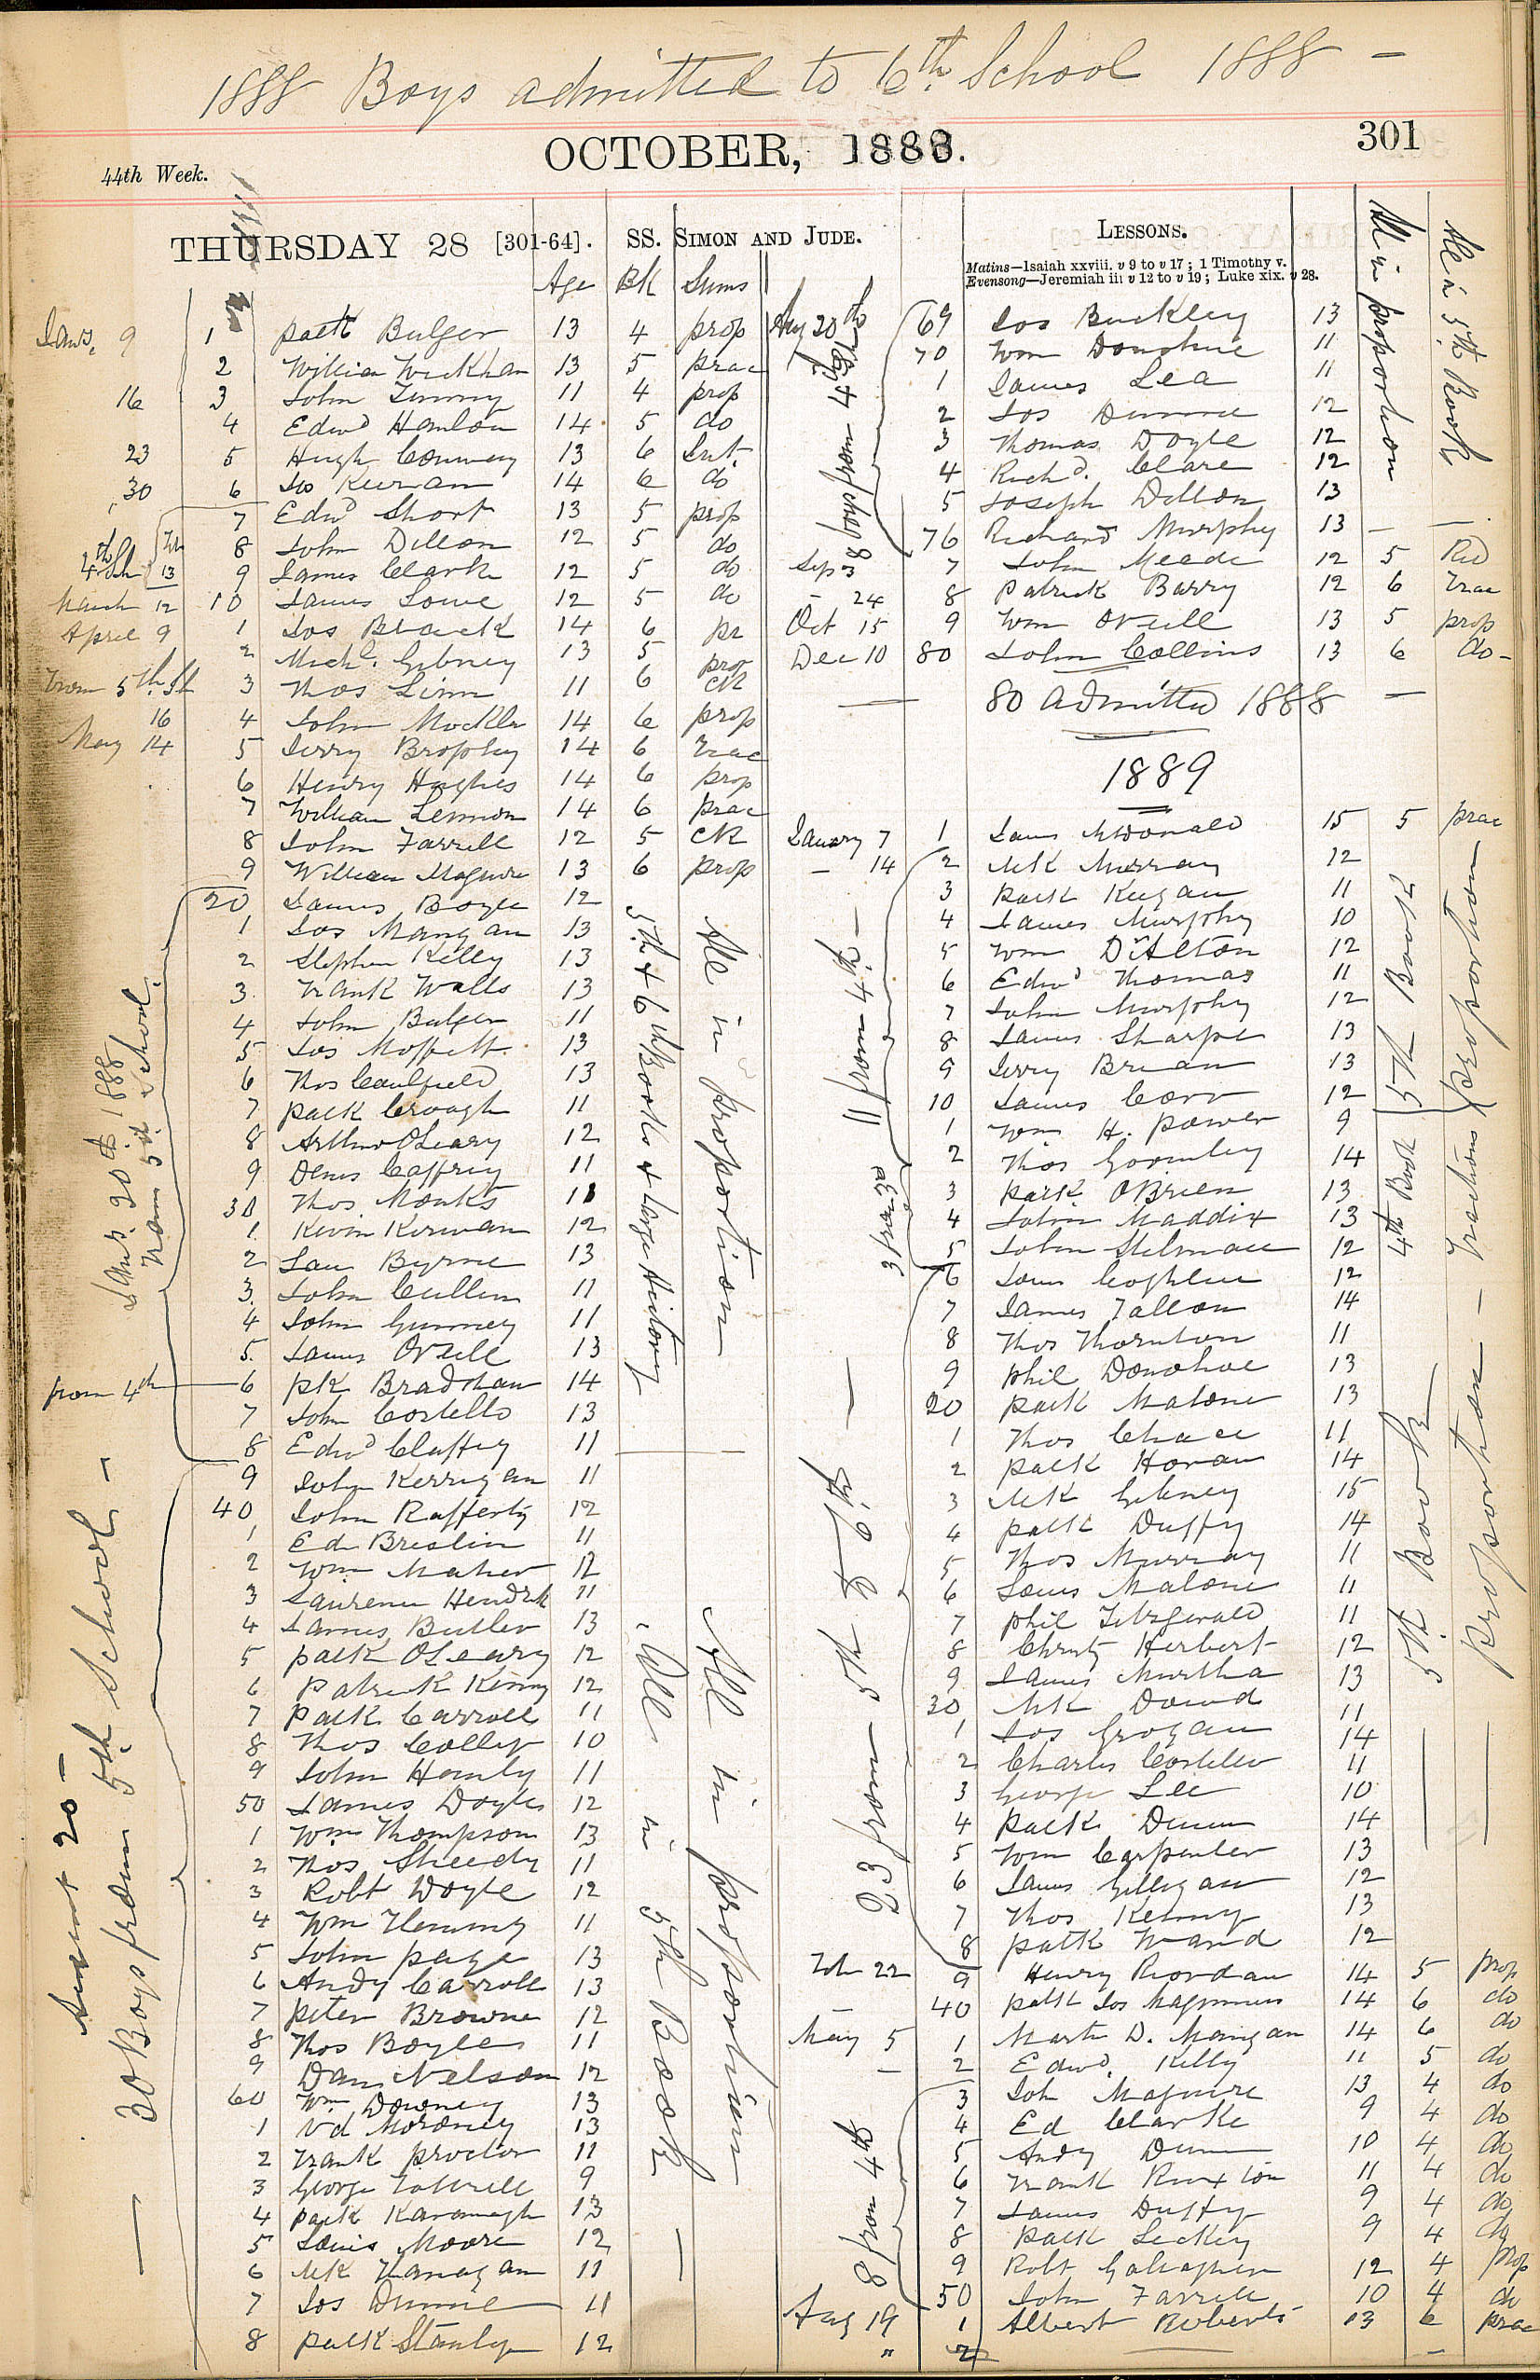 1888 Boys admitted to 6th School 1888 -
OCTOBER, 1888.
301
44th Week.
THURSDAY 28 [301-64]. SS. SIMON AND JUDE.
Age BK Sums
Jany. 9 1 Patk Bulger 13 4 prop
2 William Wickham 13 5 prac
16 3 John Timmy 11 4 prop
4 Edwd Hanlon 14 5 do
23 5 Hugh Conway 13 6 Int.
30 6 Jos Kiernan 14 6 do
7 Edwd Short 13 5 prop
8 John Dillon 12 5 do
4th Sch Feb 13 9 James Clark 12 5 do
March 12 10 James Lowe 12 5 do
April 9 1 Jos Black 14 6 pr
2 Michl. Gibney 13 5 prop
From 5th Sch 3 Thos Finn 11 6 CK
16 4 John Mockler 14 6 prop
May 14 5 Jerry Brophy 14 6 Frac
6 Henry Hughes 14 6 prop
7 William Lennon 14 6 prac
8 John Farrell 12 5 CK
9 William Maguire 13 6 prop
20 James Boyle 12
1 Jos Mangan 13
2 Stephen Kelly 13
3 Frank Walls 13
4 John Bulger 11
5 Jos Moffett 13
6 Thos Caulfield 13
7 Patk Croagh 11
8 Arthur O'Leary 12
9 Denis Caffrey 11
30 Thos. Monks 11
1 Kevin Kirwan 12
2 Lau Byrne 13
3 John Cullen 11
4 John Gunney 11
5 James O'Neill 13
from 4th 6 PK Bradshaw 14
7 John Costello 13
8 Edwd Claffey 11
Jany. 20th 1888
From 5th School.
5th & 6th Books & large History
All in proportion
9 John Kerrigan 11
40 John Rafferty 12
1 Ed Breslin 11
2 Wm Maher 12
3 Laurence Hendrk 11
4 James Butler 13
5 Patk O'Leary 12
6 Patrick Kenny 12
7 Patk Carroll 11
8 Thos Colley 10
9 John Hanly 11
50 James Doyle 12
1 Wm Thompson 13
2 Thos Sheedy 11
3 Robt Doyle 12
4 Wm Flemmg 11
5 John Page 13
6 Andy Carroll 13
7 Peter Browne 12
8 Thos Boyle 11
9 Dan Nelson 12
60 Wm Downey 13
1 Moroney 13
2 Frank Proctor 11
3 George 9
4 Patk Kavanagh 13
5 Louis Moore 12
6 MK Flanagan 11
7 Jos Dunne 11
8 Patk Stanly 12
August 20 -
30 Boys from 5th School -
All in 5th Book
All in proportion
LESSONS.
Matins—Isaiah xxviii. v 9 to v 17; 1 Timothy v.
Evensong—Jeremiah iii v 12 to v 19; Luke xix. v 28.
All in proportion
All in 5th Book
Aug 20th 69 Jos Buckley 13
70 Wm Donohue 11
1 James Lea 11
2 Jos Dunne 12
3 Thomas Doyle 12
4 Richd. Clare 12
5 Joseph Dillon 13
76 Richard Murphy 13 - -
8 from 4th
Sep 3 7 John Meade 12 5 Red
- 24 8 Patrick Barry 12 6 Frac
Oct 15 9 Wm O'Neill 13 5 prop
Dec 10 80 John Collins 13 6 do -
80 Admitted 1888 -
1889
January 7 1 James McDonald 15 5 prac
- 14 2 MK Murray 12
3 Patk Keegan 11
4 James Murphy 10
5 Wm D'Alton 12
6 Edwd Thomas 11
7 John Murphy 12
8 James Sharpe 13
9 Jerry Brenan 13
10 James Corr 12
1 Wm H. Power 9
2 Thos Gormley 14
3 Patk O'Brien 13
4 John Maddix 13
5 John 12
11 from 4th -
3 from 3rd
5th Book
4th Book
proportion
Fractions
6 Louis Coghlan 12
7 James Fallon 14
8 Thos Thornton 11
9 Phil Donohoe 13
20 Patk Malone 13
1 Thos Chace 11
2 Patk Horan 14
3 MK Gibney 15
4 Patk Duffy 14
5 Thos Murray 11
6 Louis Malone 11
7 Phil Fitzgerald 11
8 Christy Herbert 12
9 James Murtha 13
30 MK Dowd 11
1 Jos Grogan 14
2 Charles Costello 11
3 George Lee 10
4 Patk Dunn 14
5 Wm Carpenter 13
6 James Gilligan 12
7 Thos Kenny 13
8 Patk Ward 12
23 from 5th to 6th -
5th Book
proportion -
Feb 22 9 Henry Riordan 14 5 prop
- 40 Patk Jos Maginnis 14 6 do
May 5 1 Martn D. Mangan 14 6 do
- 2 Edwd. Kelly 11 5 do
3 Joh Maguire 13 4 do
4 Ed Clarke 9 4 do
5 Andy Dunn 10 4 do
6 Frank 11 4 do
7 James Duffy 9 4 do
8 Patk Leckey 9 4 do
9 Robt Gallagher 12 4 prop
50 John Farrell 10 4 do
8 from 4th
Aug 19 1 Albert Roberts 13 6 prac
" 2 -